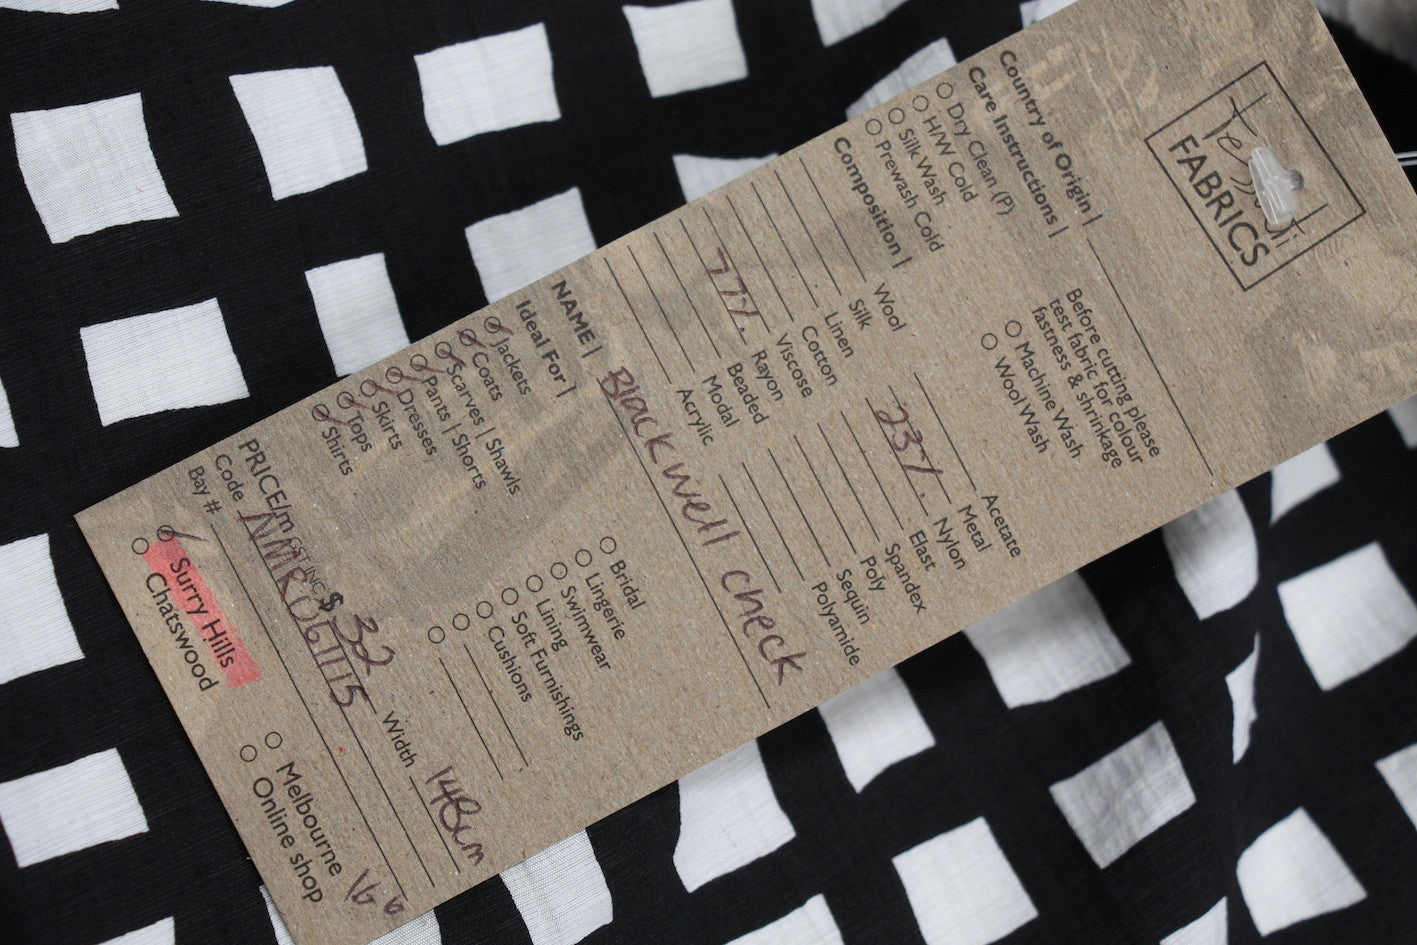 Tessuti
FABRICS
Country of Origin |
Care Instructions |
Dry Clean (P)
H/W Cold
Silk Wash
Prewash Cold
Before cutting please
test fabric for colour
fastness & shrinkage
Machine Wash
Wool Wash
Composition |
Wool
Silk
Linen
Cotton
Viscose
77% Rayon
Beaded
Modal
Acrylic
Acetate
Metal
23% Nylon
Elast
Spandex
Poly
Sequin
Polyamide
NAME | Blackwell check
Ideal For |
Jackets
Coats
Scarves | Shawls
Pants | Shorts
Dresses
Skirts
Tops
Shirts
Bridal
Lingerie
Swimwear
Lining
Soft Furnishings
Cushions
PRICE/m GST INC. $ 32 Width 148cm
Code NMR061115
Bay #
Surry Hills
Chatswood
Melbourne
Online shop